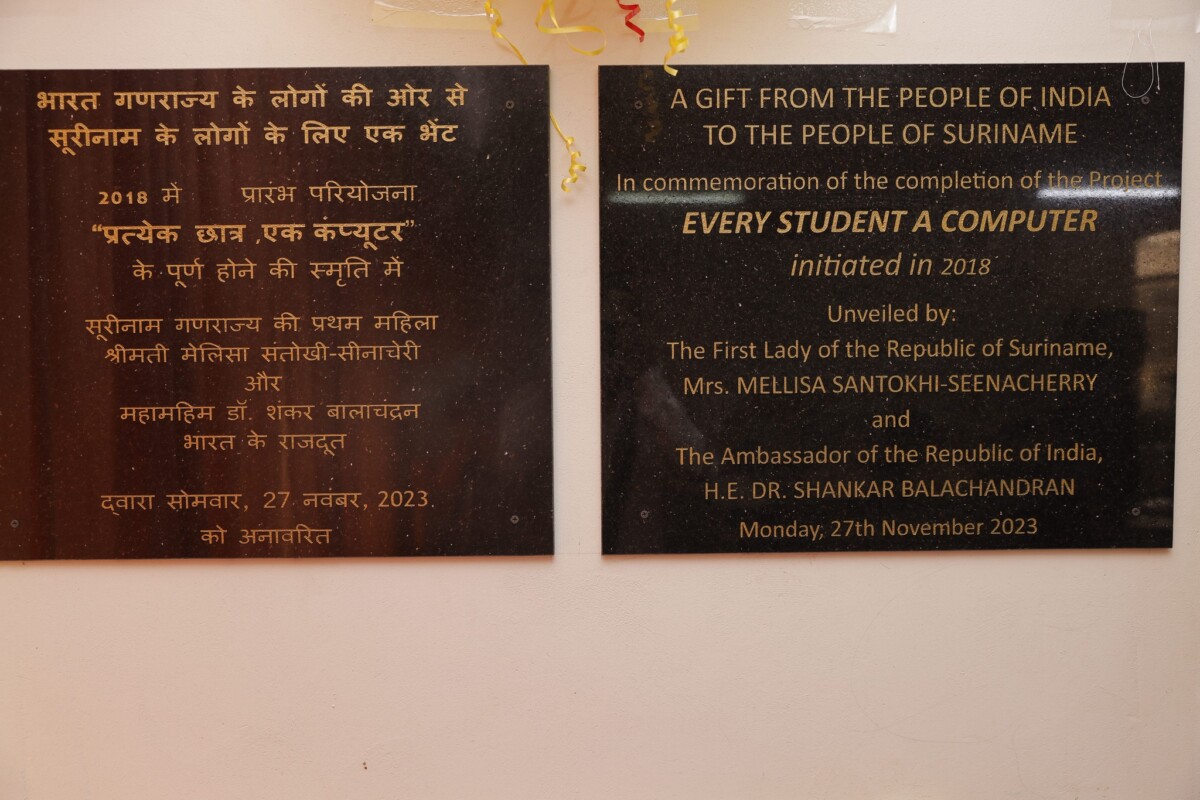 भारत गणराज्य के लोगों की ओर से
सूरीनाम के लोगों के लिए एक भेंट
2018 में प्रारंभ परियोजना
“प्रत्येक छात्र ,एक कंप्यूटर”
के पूर्ण होने की स्मृति में
सूरीनाम गणराज्य की प्रथम महिला
श्रीमती मेलिसा संतोखी-सीनाचेरी
और
महामहिम डॉ. शंकर बालाचंद्रन
भारत के राजदूत
द्वारा सोमवार, 27 नवंबर, 2023
को अनावरित
A GIFT FROM THE PEOPLE OF INDIA
TO THE PEOPLE OF SURINAME
In commemoration of the completion of the Project
EVERY STUDENT A COMPUTER
initiated in 2018
Unveiled by:
The First Lady of the Republic of Suriname,
Mrs. MELLISA SANTOKHI-SEENACHERRY
and
The Ambassador of the Republic of India,
H.E. DR. SHANKAR BALACHANDRAN
Monday, 27th November 2023